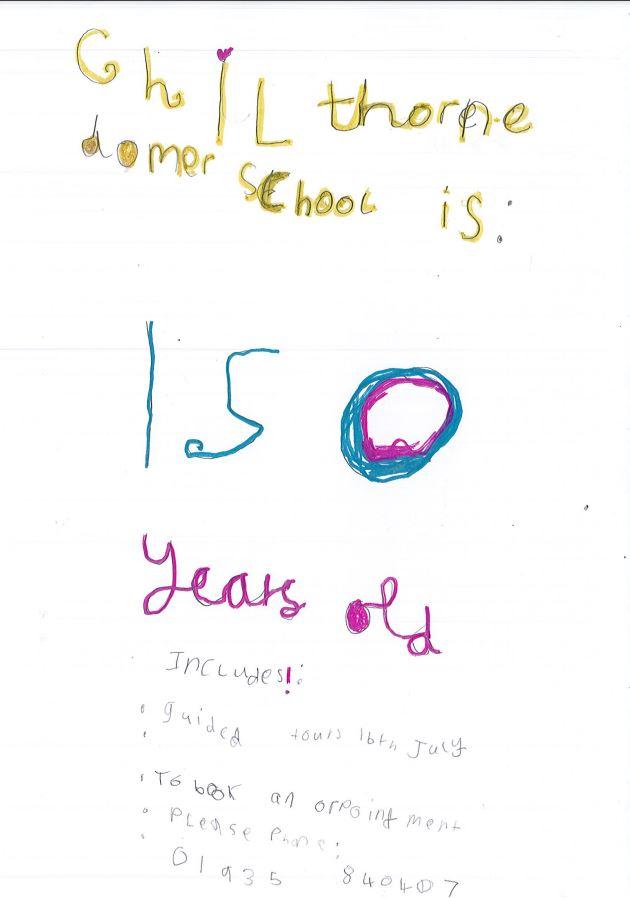 ChiL thorne
domer SChooL is:
150
years old
Includes!:
guided tours 16th July
To book an appointment
PLease Phone:
01935 840407